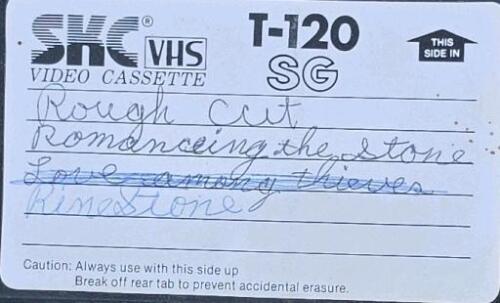 SKC® VHS
VIDEO CASSETTE
T-120
SG
THIS
SIDE IN
Rough Cut
Romanceing the Stone
Love among thieves
RineStone
Caution: Always use with this side up
Break off rear tab to prevent accidental erasure.